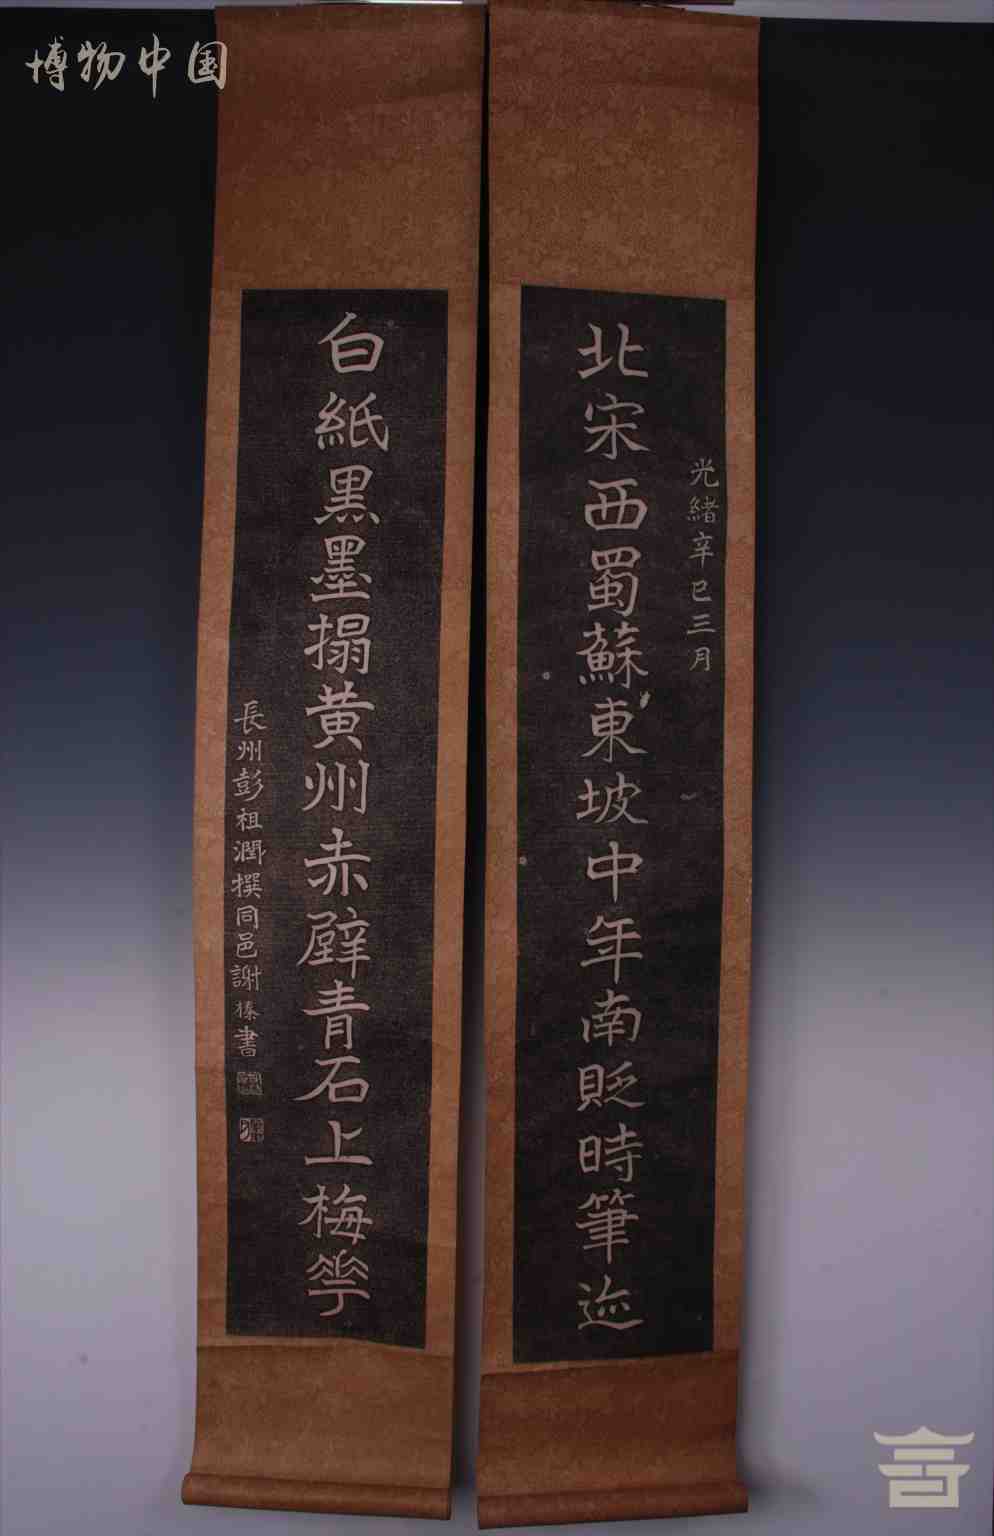 博物中国
光緒辛巳三月
北宋西蜀蘇東坡中年南貶時筆迹
白紙黒墨搨黄州赤壁青石上梅華
長州彭祖潤撰同邑謝榛書